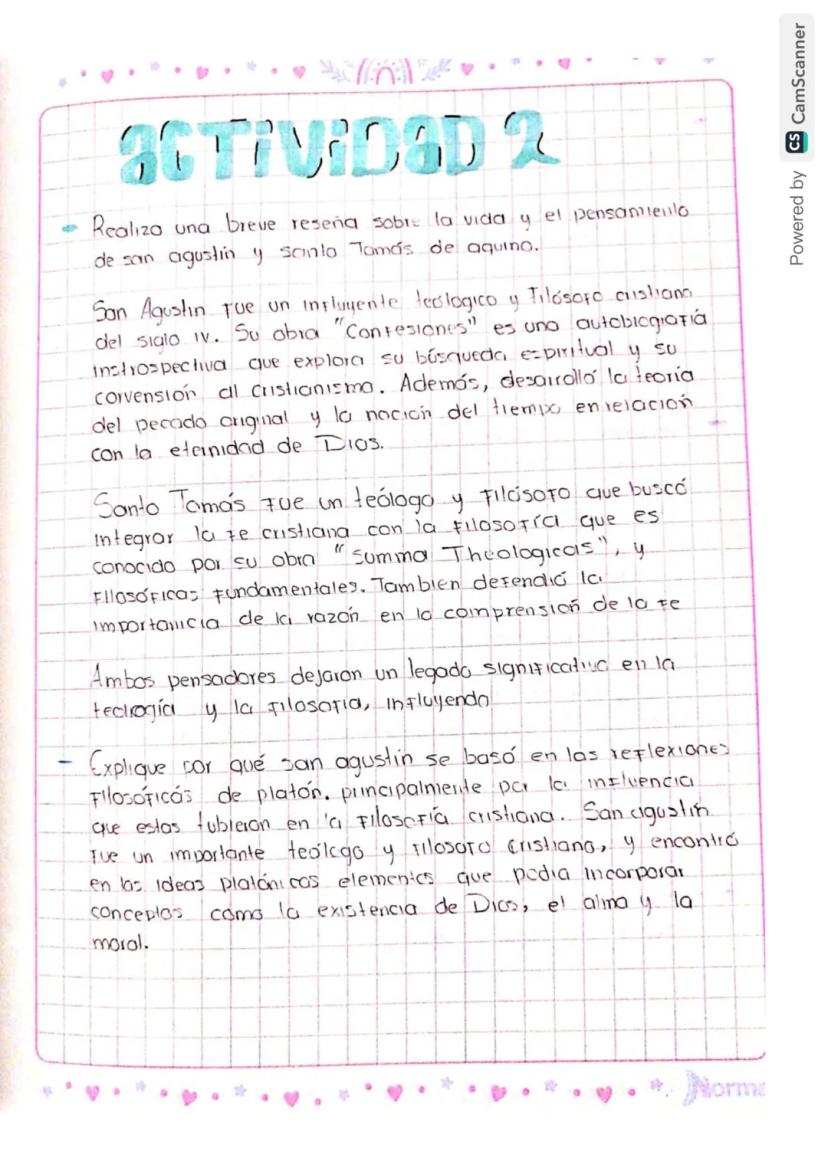 ACTIVIDAD 2
Realiza una breve reseña sobre la vida y el pensamiento
de san agustin y santo Tomás de aquino.
San Agustin fue un influyente teólogico y filósofo cristiano
del siglo IV. Su obra "Confesiones" es una autobiografiá
instrospectiva que explora su búsqueda espiritual y su
convensión al cristianismo. Además, desarrolló la teoría
del pecado original y la noción del tiempo en relación
con la eternidad de Dios.
Santo Tomás fue un teólogo y filósofo que buscó
integrar la fe cristiana con la filosofía que es
conocido por su obra "Summa Theologicas", y
filosóficas fundamentales. Tambien defendió la
importanicia de la razón en la comprensión de la fe
Ambos pensadores dejaron un legado significativo en la
teología y la filosofia, influyendo
- Explique por qué san agustin se basó en las reflexiones
filosóficás de platón. principalmente por la influencia
que estas tubieron en la filosofía cristiana. San agustin
fue un importante teólogo y filosofo Cristiano, y encontró
en las ideas platónicas elementos que podia incorporar
conceptos como la existencia de Dios, el alma y la
moral.
Norma
Powered by CS CamScanner